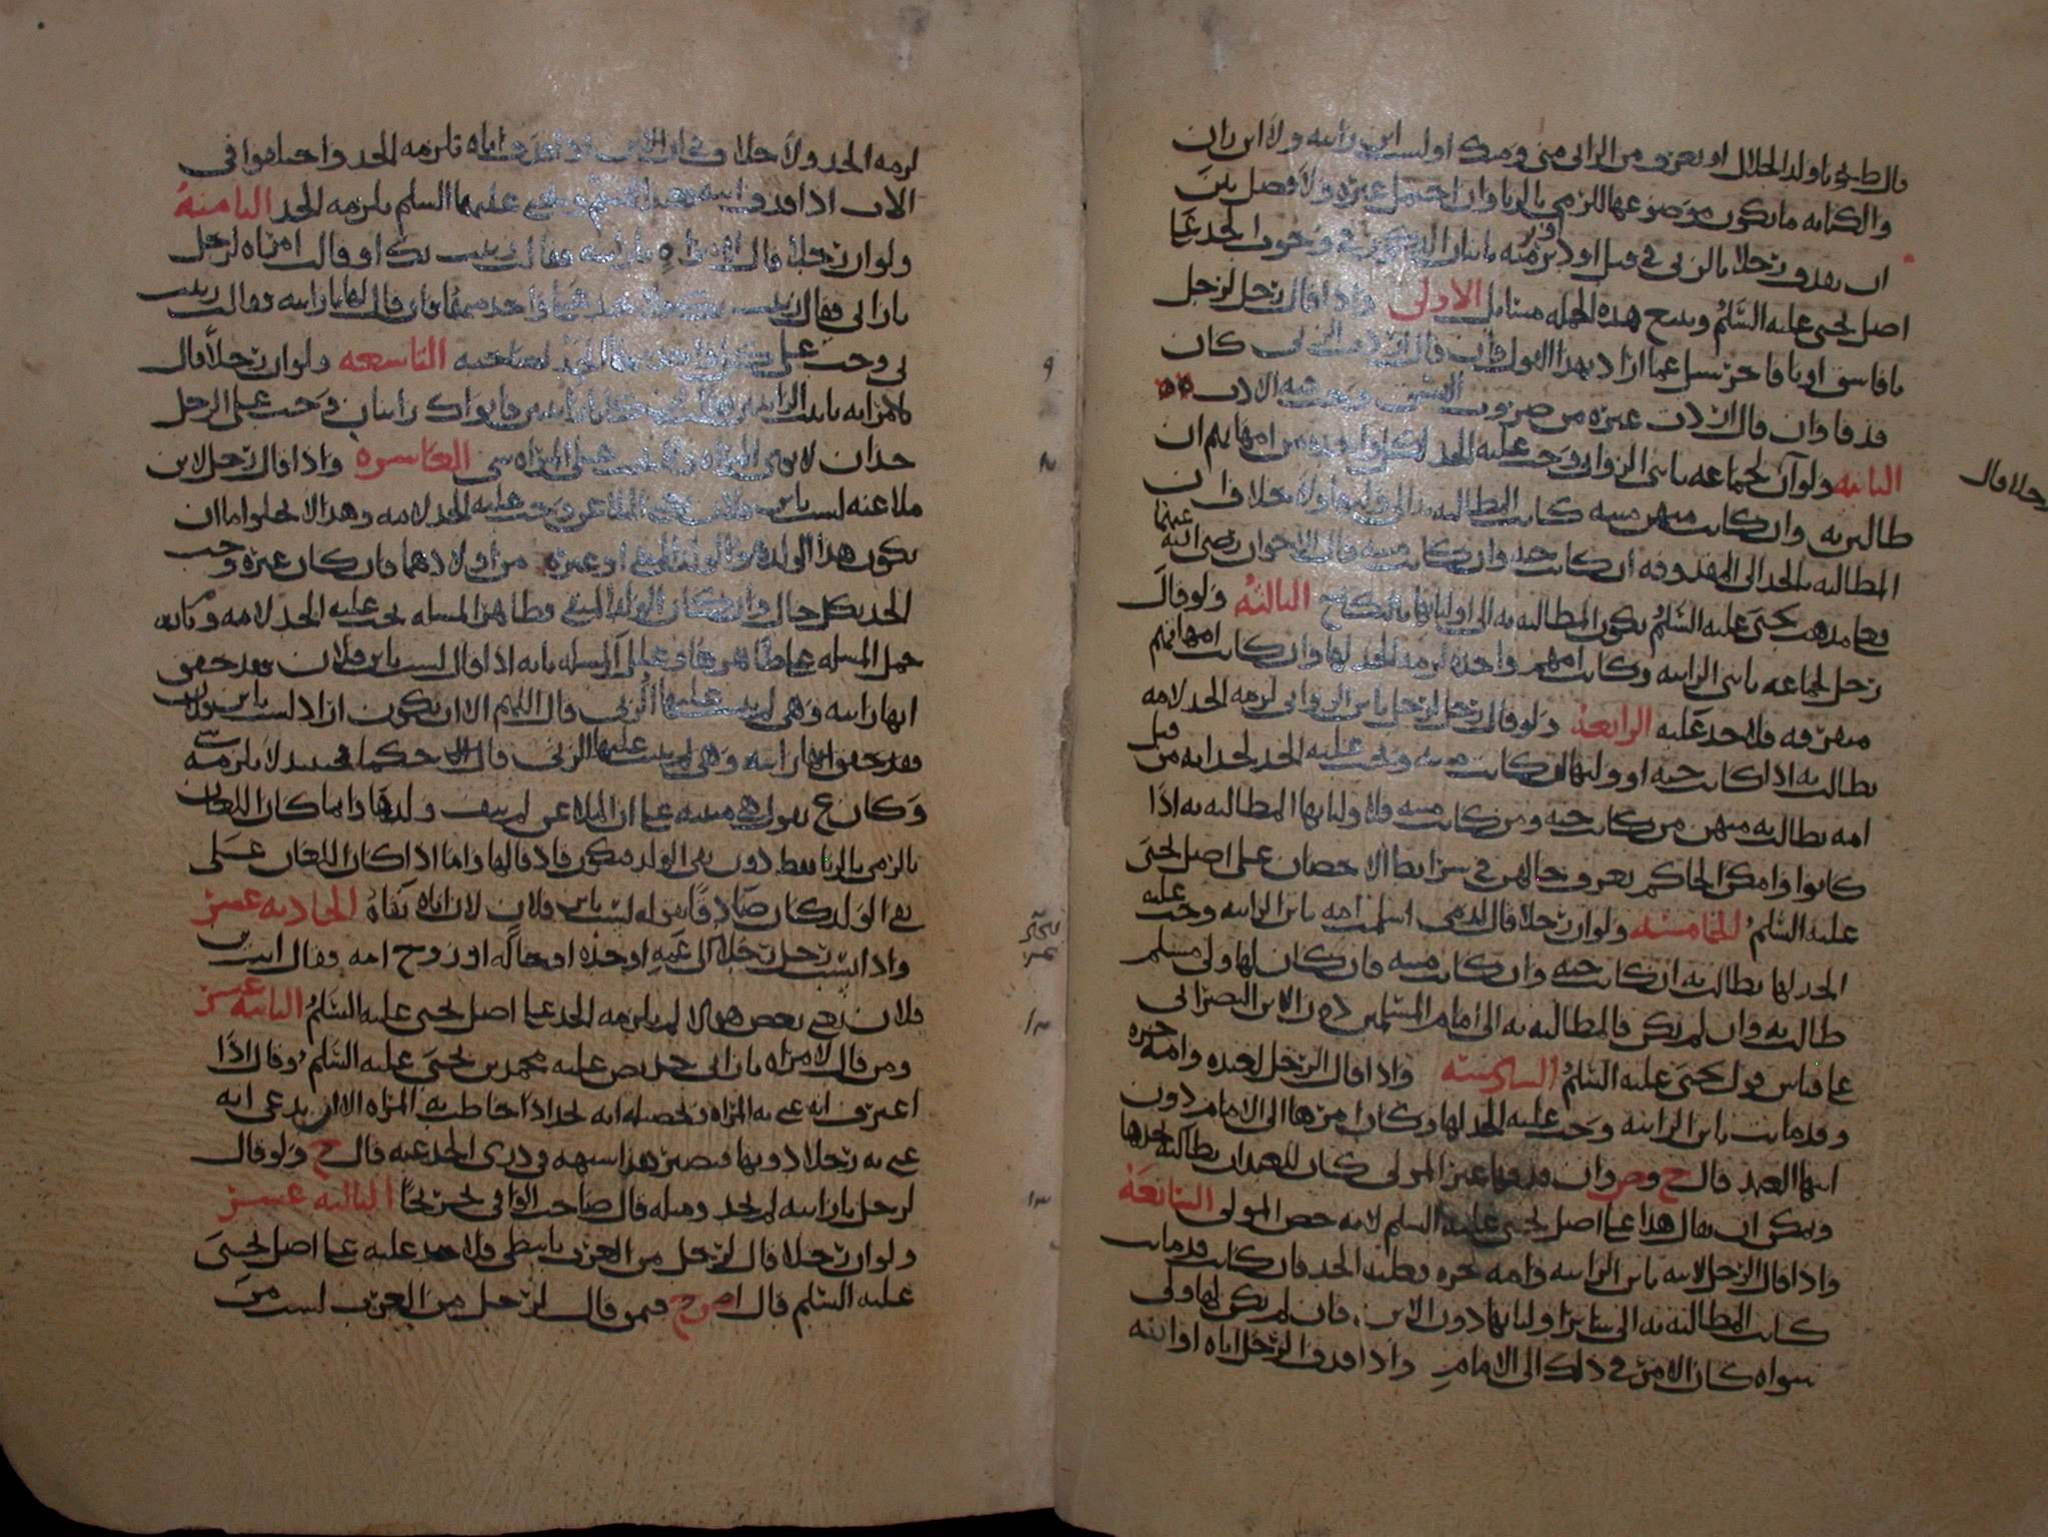 قال
يا ولد الحلال او يعرف من الزاني مني ومنك او لست ابن زانيه ولا ابن زان
والكنايه ما يكون موضوعها للرمي بالزنا وان احتمل غيره ولا فصل بين
ان يقذف رجلا بالزنى في قبل او دبر
اصل يحيى عليه السلم هذه الجمله مسايل الاولى واذا قال رجل لرجل
يا فاسق او يا فاجر سيل عما اراد بهذا القول فان قال اردت الزنى كان
قذفا وان قال اردت غيره من ضروب الفسق وجب فيه الادب
الثانيه ولو ان لجماعه يا بني الزواني وجب عليه الحد لكل واحده من امهاتهم ان
رجلا قال
طالبن به وان كانت منهن ميته كانت المطالبه الى وليها ولا خلاف ان
المطالبه بالحد الى المقذوفه ان كانت حيه وان كانت ميته قال الاخوان رضي الله عنهما
مذهب يحيى عليه السلم يكون المطالبه به الى اوليايها بالنكاح الثالثه ولو قال
رجل لجماعه يا بني الزانيه وكانت امهم واحده لزمه الحد لها وان كانت امهاتهم
متفرقه فلا حد عليه الرابعه ولو قال رجل لرجل يا بن الزواني لزمه الحد لامه
يطالب به اذا كانت حيه او وليها ان كانت ميته ويجب عليه الحد لجداته من قبل
امه يطالب به منهن من كانت حيه ومن كانت ميته فلاوليايها المطالبه به اذا
كانوا وامكن الحاكم تعرف حالهن في شرايط الاحصان على اصل يحيى
عليه السلم الخامسه ولو ان رجلا قال لذمي اسلمت امه يا بن الزانيه وجب عليه
الحد لها يطالب به ان كانت حيه وان كانت ميته فان كان لها ولي مسلم
طالب به وان لم يكن فالمطالبه به الى امام المسلمين دون الابن النصراني
على قياس قول يحيى عليه السلم السادسه واذا قال الرجل لعبده وامه حره
وقد ماتت يا بن الزانيه وجب عليه الحد لها وكان امرها الى الامام دون
ابنها العبد قال ح وص وان قذفها غير المولى كان للعبد ان يطالب بحدها
ويمكن ان يقال هذا على اصل يحيى عليه السلم لانه خص المولى السابعه
واذا قال الرجل لابنه يا بن الزانيه وامه حره فعليه الحد فان كانت قد ماتت
كانت المطالبه به الى ساير اوليايها دون الابن فان لم يكن لها ولي
سواه كان الامر في ذلك الى الامام واذا قذف الرجل اباه او ابنه
لزمه الحد ولا خلاف في ان الابن اذا قذف اباه يلزمه الحد واختلفوا في
الاب اذا قذف ابنه فعند القسم ويحيى عليهما السلم يلزمه الحد الثامنه
ولو ان رجلا قال لامراه يا زانيه فقالت زنيت بك او قالت امراه لرجل
يا زاني فقال زنيت بك فلا حد على واحد منهما فان قال لها يا زانيه فقالت زنيت
بي وجب على كل واحد منهما الحد لصاحبه التاسعه ولو ان رجلا قال
لامراته يا بنت الزانيين فقالت ان كانا زانيين فابواك زانيان وجب على الرجل
حدان لابوي المراه ولا يجب على المراه شي العاشره واذا قال رجل لابن
ملاعنه لست بابن فلان يعني الملاعن وجب عليه الحد لامه وهذا لا يخلو اما ان
يكون هذا الولد هو الولد المنفي او غيره من اولادهما فان كان غيره وجب
الحد بكل حال وان كان الولد المنفي فظاهر المسله يجب عليه الحد لامه
حمل المسله على ظاهرها المسله بانه اذا قال لست بابن فلان فقد حقق
انها زانيه وهي لم يثبت عليها الزنى قال اللهم الا ان يكون اراد لست بابن فلان
فقد حقق انها زانيه وهي لم يثبت عليها الزنى قال حكما فحينئذ لا يلزمه شي
وكان ع يقول هي مبنيه على ان الملاعن لم ينف ولدها وانما كان اللعان
بالرمي بالزنا فقط دون نفي الولد فيكون قاذفا لها واما اذا كان اللعان على
نفي الولد كان صادقا بقوله لست بابن فلان لان اباه نفاه الحاديه عشر
واذا نسب رجل رجلا الى عمه او جده او خاله او زوج امه وقال انت بن
فلان يعني بعض هولا لم يلزمه الحد على اصل يحيى عليه السلم الثانيه عشر
ومن قال لامراه يا زاني حد نص عليه محمد بن يحيى عليه السلم وقال اذا
اعترف انه عنى به المراه وتحصيله انه لحد اذا خاطب به المراه الا ان يدعي انه
عنى به رجلا دونها فيصير هذا شبهه في درى الحد عنه قال ح ولو قال
لرجل يا زانيه لم يحد ومثله قال صاحب الوافي الثالثه عشر
ولو ان رجلا قال لرجل من العرب يا نبطي فلا حد عليه على اصل يحيى
عليه السلم قال ص وح فمن قال لرجل من العرب لست من